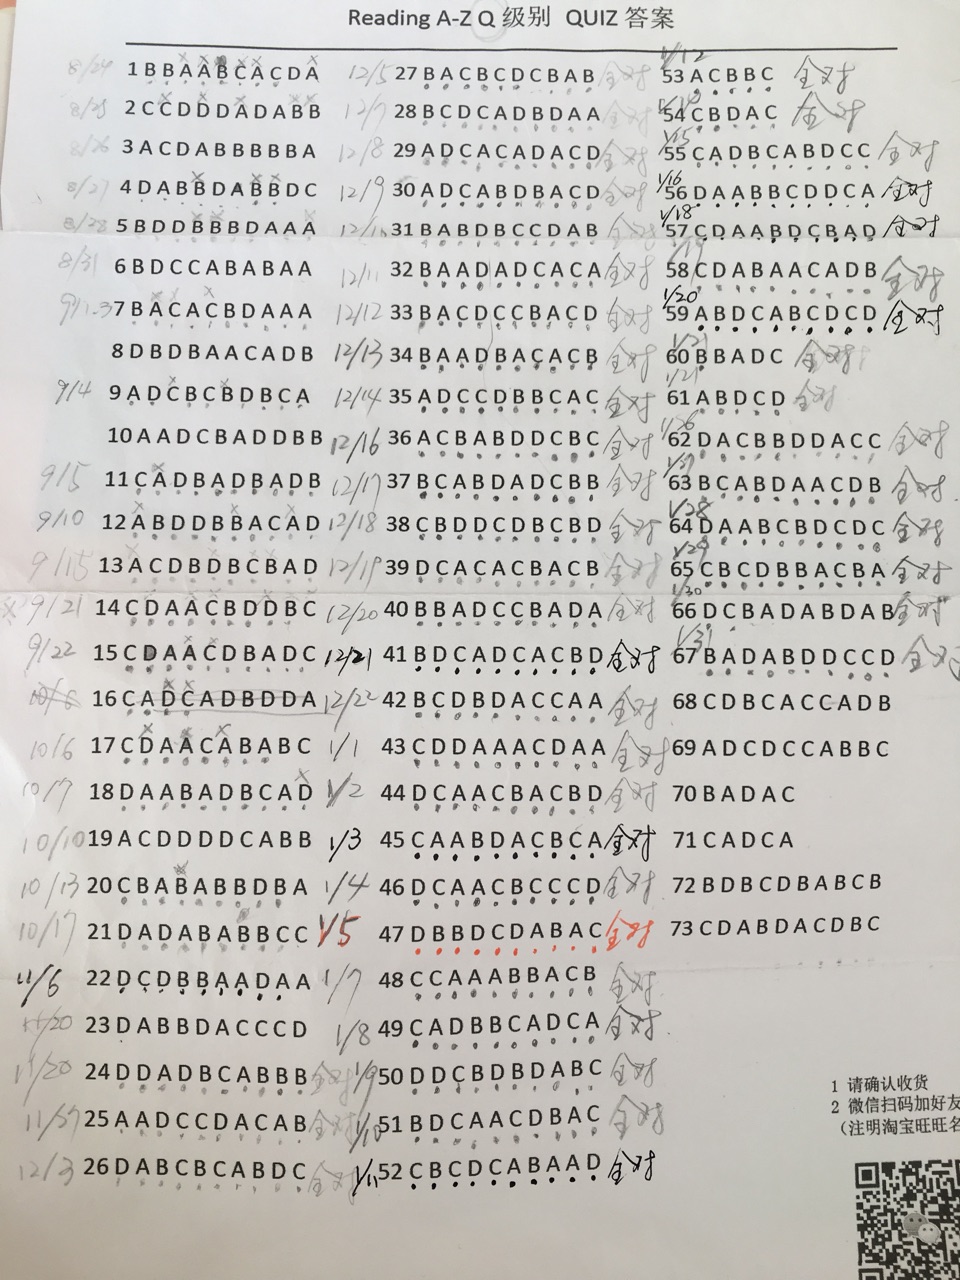 Reading A-Z Q 级别 QUIZ 答案
8/24 1 B B A A B C A C D A
8/25 2 C C D D D A D A B B
8/26 3 A C D A B B B B B A
8/27 4 D A B B D A B B D C
8/28 5 B D D B B B D A A A
8/31 6 B D C C A B A B A A
7 B A C A C B D A A A
8 D B D B A A C A D B
9/4 9 A D C B C B D B C A
10 A A D C B A D D B B
9/5 11 C A D B A D B A D B
9/10 12 A B D D B B A C A D
9/15 13 A C D B D B C B A D
9/21 14 C D A A C B D D B C
9/22 15 C D A A C D B A D C
16 C A D C A D B D D A
10/6 17 C D A A C A B A B C
10/7 18 D A A B A D B C A D
10/10 19 A C D D D D C A B B
10/13 20 C B A B A B B D B A
10/17 21 D A D A B A B B C C
11/6 22 D C D B B A A D A A
11/20 23 D A B B D A C C C D
11/20 24 D D A D B C A B B B 全对
25 A A D C C D A C A B 全对
12/3 26 D A B C B C A B D C 全对
12/5 27 B A C B C D C B A B 全对
12/7 28 B C D C A D B D A A
12/8 29 A D C A C A D A C D 全对
12/9 30 A D C A B D B A C D 全对
31 B A B D B C C D A B 全对
12/11 32 B A A D A D C A C A 全对
12/12 33 B A C D C C B A C D 全对
12/13 34 B A A D B A C A C B 全对
12/14 35 A D C C D B B C A C 全对
12/16 36 A C B A B D D C B C 全对
12/17 37 B C A B D A D C B B 全对
12/18 38 C B D D C D B C B D 全对
12/19 39 D C A C A C B A C B 全对
12/20 40 B B A D C C B A D A 全对
12/21 41 B D C A D C A C B D 全对
12/22 42 B C D B D A C C A A 全对
1/1 43 C D D A A A C D A A 全对
1/2 44 D C A A C B A C B D 全对
1/3 45 C A A B D A C B C A 全对
1/4 46 D C A A C B C C C D 全对
1/5 47 D B B D C D A B A C 全对
1/7 48 C C A A A B B A C B 全对
1/8 49 C A D B B C A D C A 全对
1/9 50 D D C B D B D A B C 全对
1/10 51 B D C A A C D B A C 全对
1/11 52 C B C D C A B A A D 全对
1/12 53 A C B B C 全对
54 C B D A C 全对
1/15 55 C A D B C A B D C C 全对
1/16 56 D A A B B C D D C A 全对
1/18 57 C D A A B D C B A D 全对
1/19 58 C D A B A A C A D B 全对
1/20 59 A B D C A B C D C D 全对
1/21 60 B B A D C 全对
1/21 61 A B D C D 全对
1/26 62 D A C B B D D A C C 全对
1/27 63 B C A B D A A C D B 全对
1/28 64 D A A B C B D C D C 全对
1/29 65 C B C D B B A C B A 全对
1/30 66 D C B A D A B D A B 全对
1/31 67 B A D A B D D C C D 全对
68 C D B C A C C A D B
69 A D C D C C A B B C
70 B A D A C
71 C A D C A
72 B D B C D B A B C B
73 C D A B D A C D B C
1 请确认收货
2 微信扫码加好友
(注明淘宝旺旺名